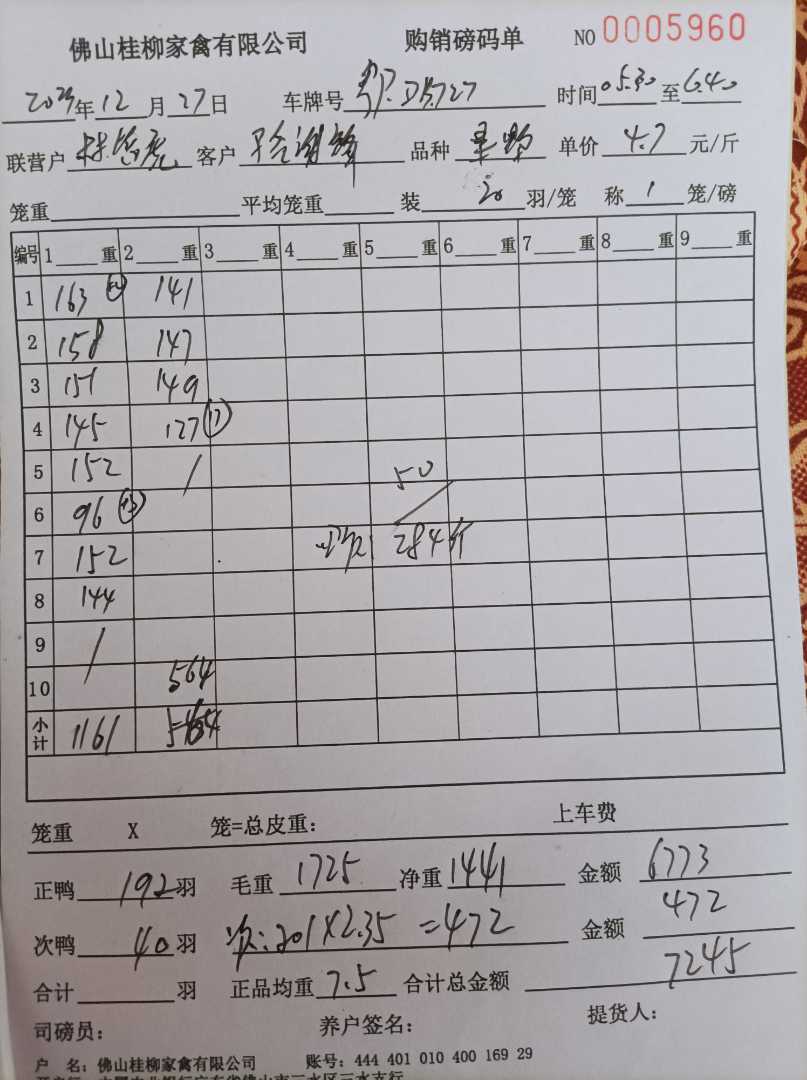 佛山桂柳家禽有限公司 购销磅码单 NO 0005960
年 12 月 27 日 车牌号 时间 05.30 至 6.40
联营户 客户 品种 单价 4.7 元/斤
笼重 平均笼重 装 20 羽/笼 称 1 笼/磅
编号 1 重 2 重 3 重 4 重 5 重 6 重 7 重 8 重 9 重
1 163 141
2 158 147
3 151 149
4 145 127 (17)
5 152 / 50
6 96
7 152 284斤
8 144
9 /
10 564
小计 1161
笼重 X 笼=总皮重: 上车费
正鸭 192 羽 毛重 1725 净重 1441 金额 6773
次鸭 40 羽 次:201X2.35=472 金额 472
合计 羽 正品均重 7.5 合计总金额 7245
司磅员: 养户签名: 提货人:
户 名: 佛山桂柳家禽有限公司 账号: 444 401 010 400 169 29